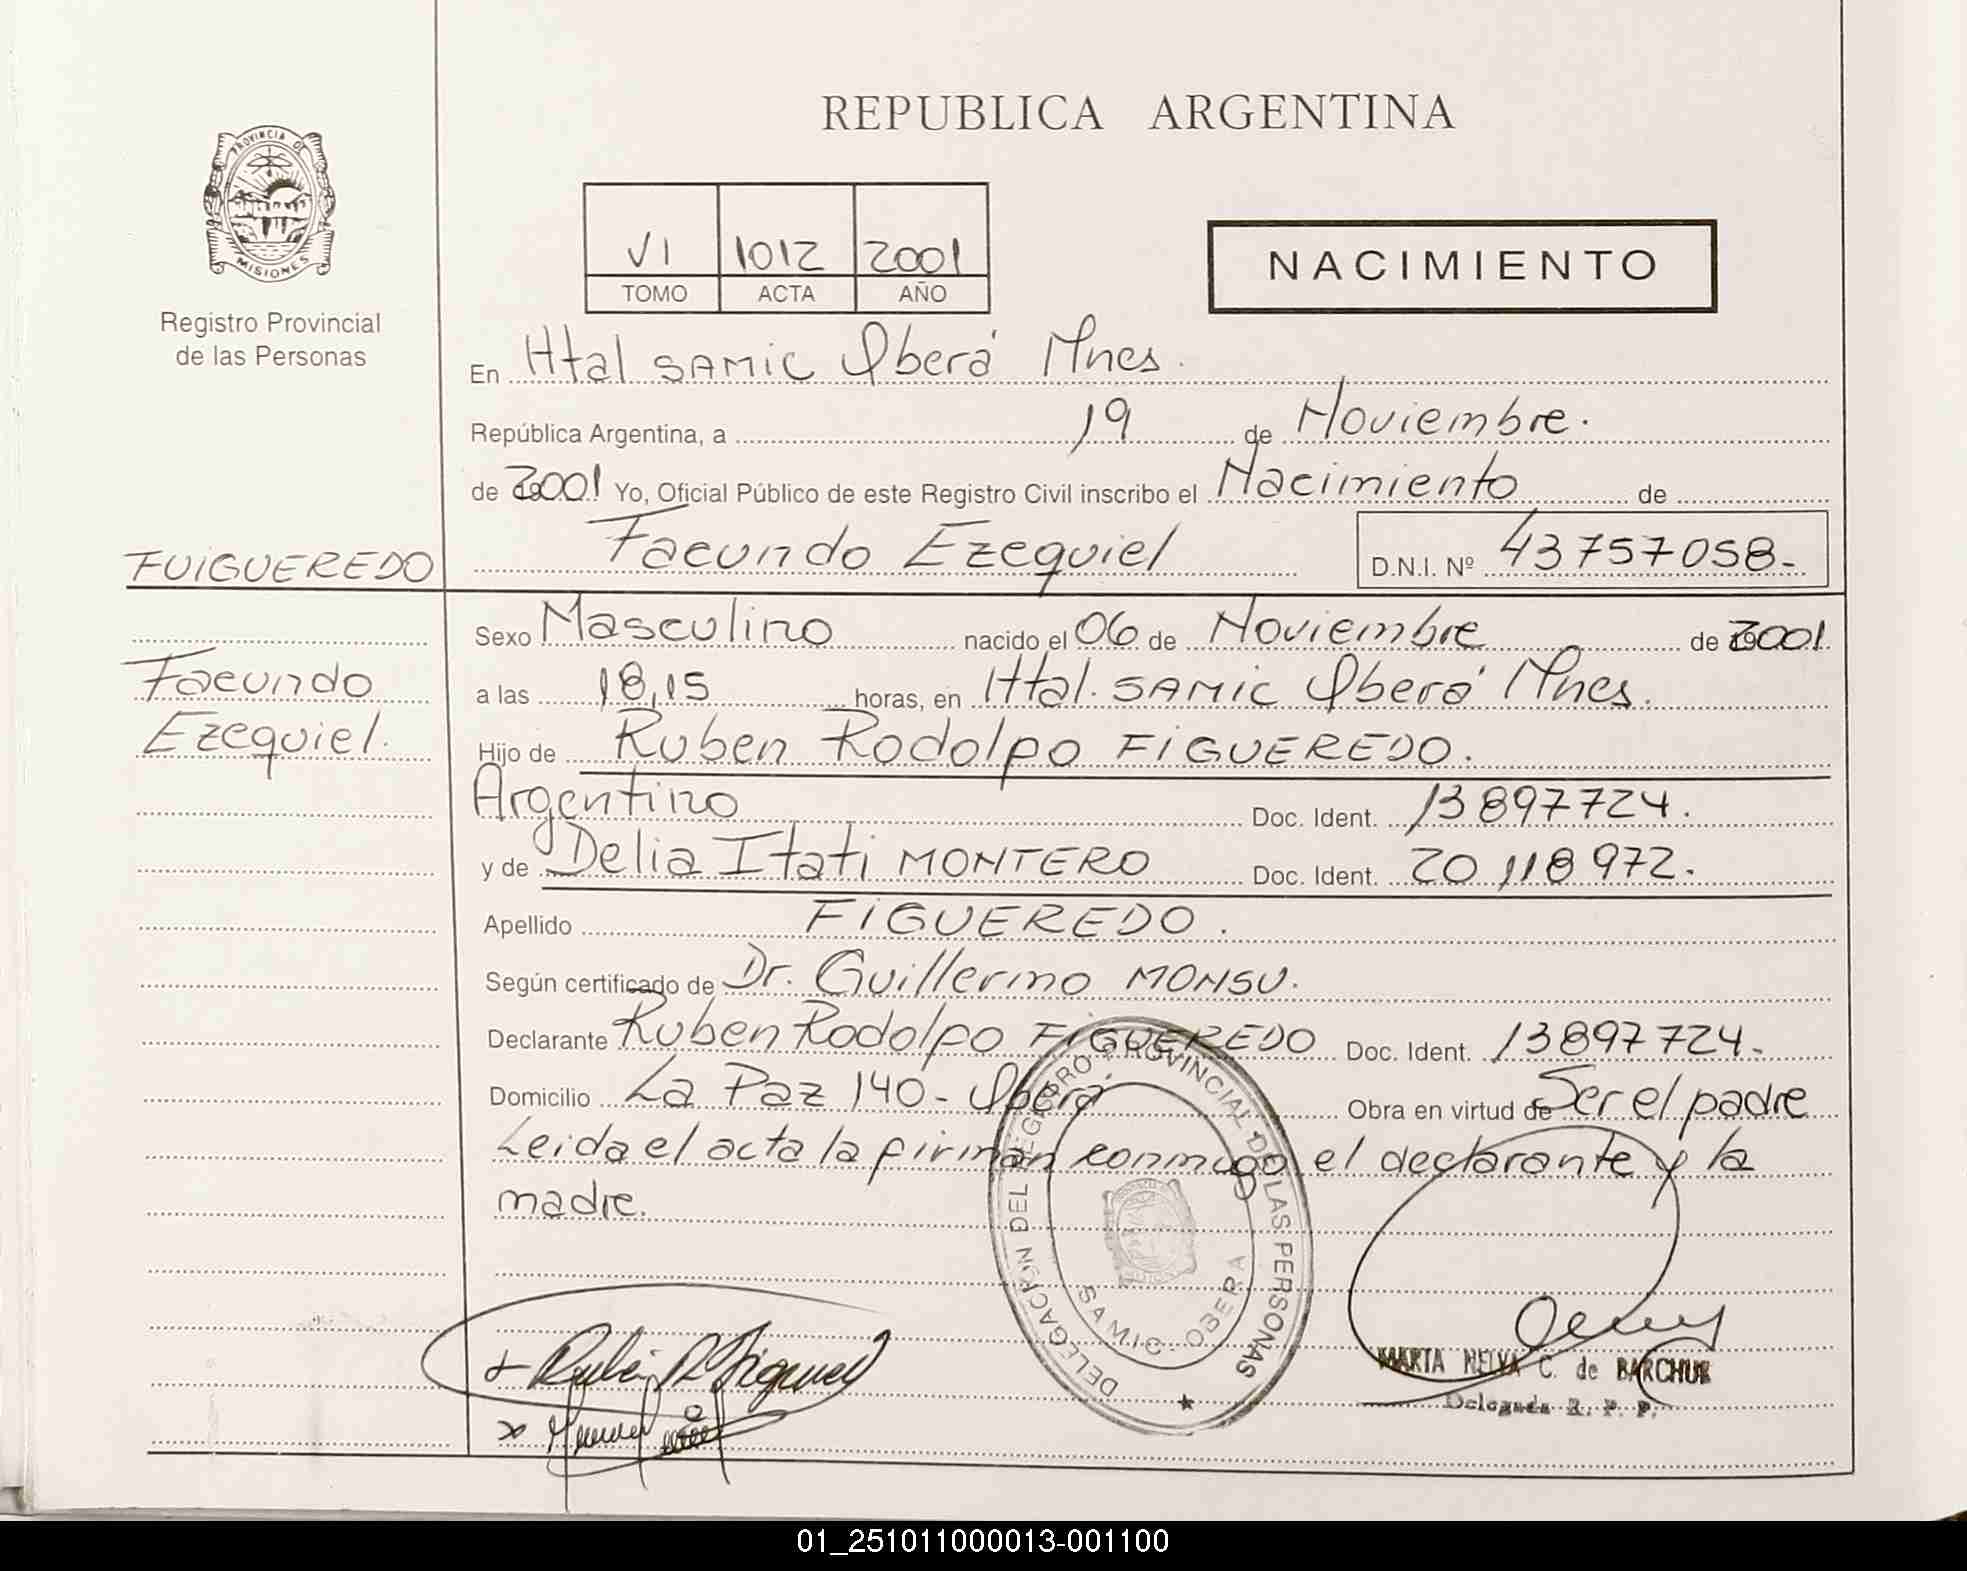 REPUBLICA ARGENTINA
PROVINCIA DE
MISIONES
Registro Provincial
de las Personas
VI 1012 2001
TOMO ACTA AÑO
NACIMIENTO
En Htal SAMIC Oberá Mnes.
República Argentina, a 19 de Noviembre.
de 2001 Yo, Oficial Público de este Registro Civil inscribo el Nacimiento de
FUIGUEREDO
Facundo Ezequiel D.N.I. Nº 43757058-
Sexo Masculino nacido el 06 de Noviembre de 2001
Facundo
Ezequiel.
a las 18,15 horas, en Htal. SAMIC Oberá Mnes.
Hijo de Ruben Rodolfo FIGUEREDO.
Argentino Doc. Ident. 13897724.
y de Delia Itati MONTERO Doc. Ident. 20 118 972.
Apellido FIGUEREDO.
Según certificado de Dr. Guillermo MONSU.
Declarante Ruben Rodolfo FIGUEREDO Doc. Ident. 13897724-
Domicilio La Paz 140- Oberá Obra en virtud de Ser el padre
Leida el acta la firman conmigo el declarante y la
madre.
DELEGACION DEL REGISTRO PROVINCIAL DE LAS PERSONAS
SAMIC OBERA
MARTA NELVA C. de BARCHUK
Delegada R. P. P.
01_251011000013-001100